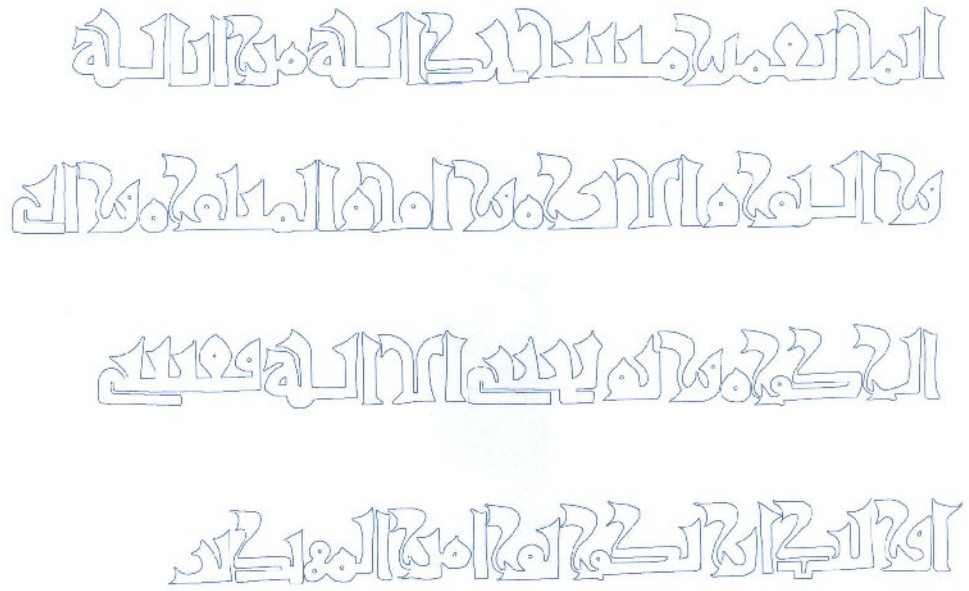 انما يعمر مسجد الله من امن بالله
و اليوم الاخر و اقام الصلوة و اتى
الزكوة و لم يخش الا الله فعسى
اولئك ان يكونوا من المهتدين